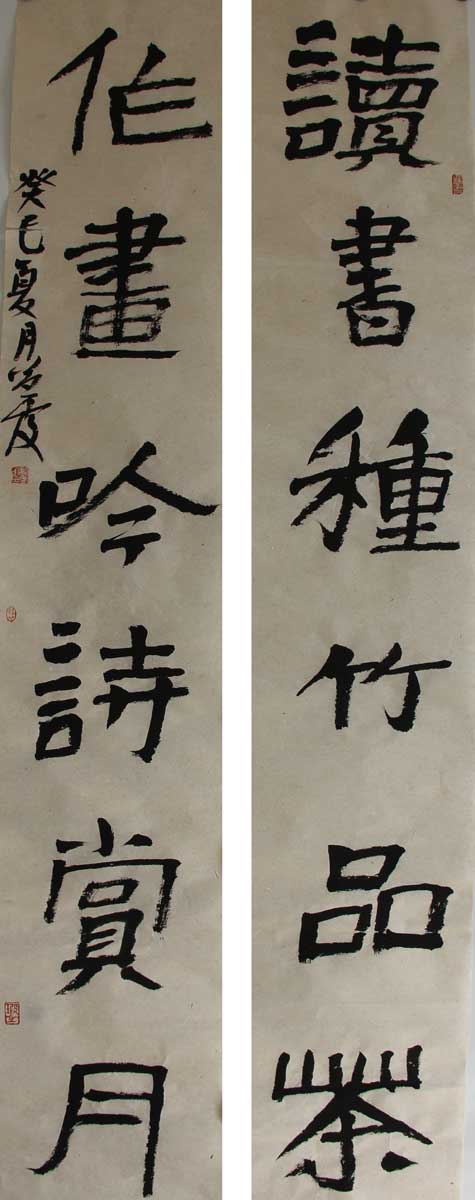 讀書種竹品茶
作畫吟詩賞月
癸巳夏月